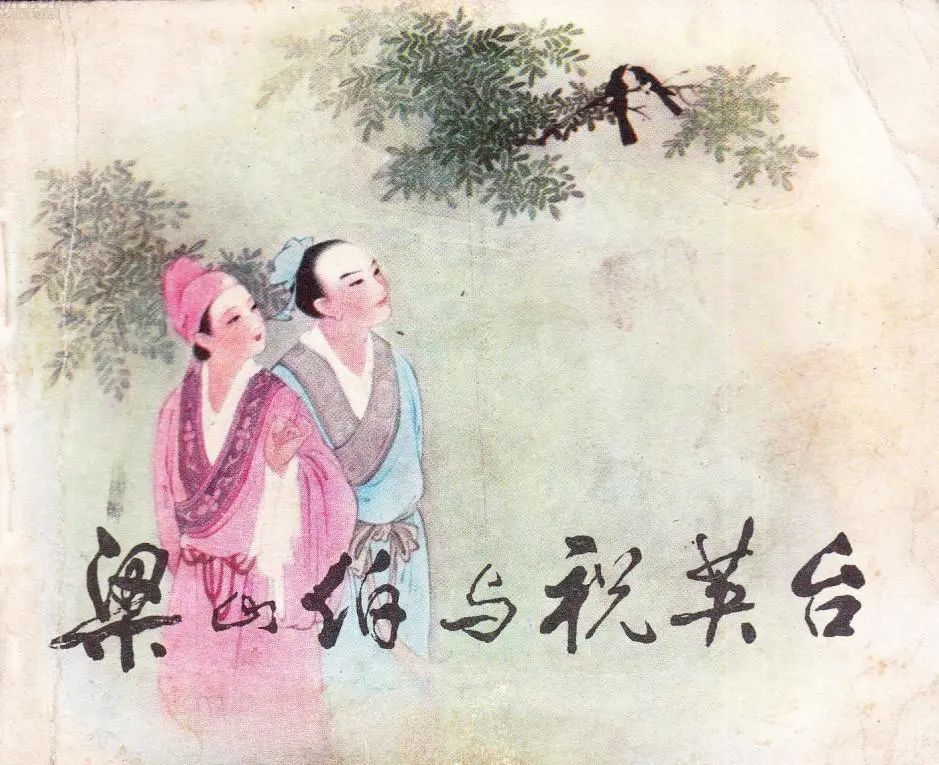 梁山伯与祝英台